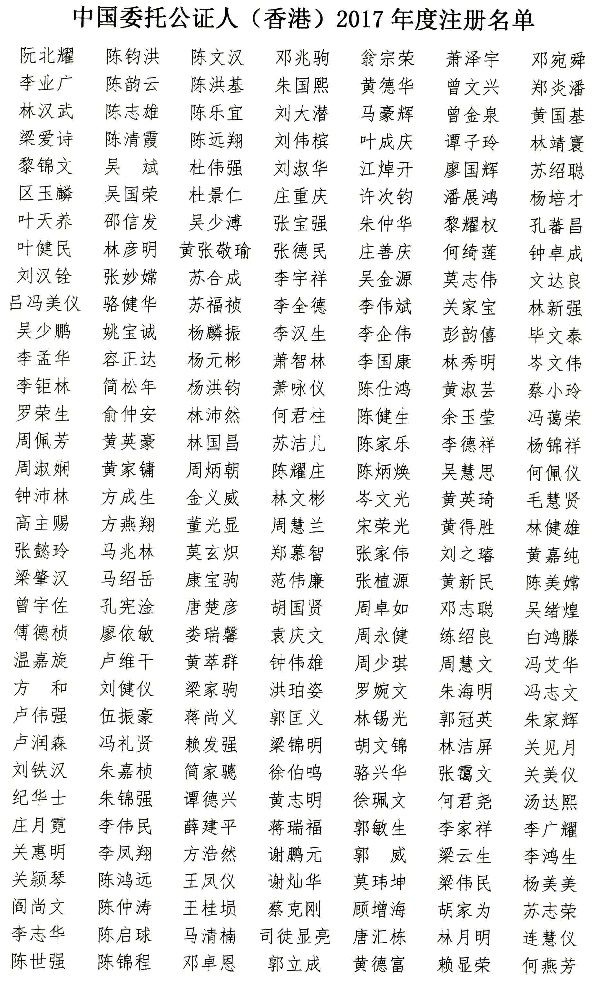 中国委托公证人（香港）2017年度注册名单
阮北耀 陈钧洪 陈文汉 邓兆驹 翁宗荣 萧泽宇 邓宛舜
李业广 陈韵云 陈洪基 朱国熙 黄德华 曾文兴 郑炎潘
林汉武 陈志雄 陈乐宜 刘大潜 马豪辉 曾金泉 黄国基
梁爱诗 陈清霞 陈远翔 刘伟槟 叶成庆 谭子玲 林靖寰
黎锦文 吴 斌 杜伟强 刘淑华 江焯开 廖国辉 苏绍聪
区玉麟 吴国荣 杜景仁 庄重庆 许次钧 潘展鸿 杨培才
叶天养 邵信发 吴少溥 张宝强 朱仲华 黎耀权 孔蕃昌
叶健民 林彦明 黄张敬瑜 张德民 庄善庆 何绮莲 钟卓成
刘汉铨 张妙嫦 苏合成 李宇祥 吴金源 莫志伟 文达良
吕冯美仪 骆健华 苏福祯 李全德 李伟斌 关家宝 林新强
吴少鹏 姚宝诚 杨麟振 李汉生 李企伟 彭韵僖 毕文泰
李孟华 容正达 杨元彬 萧智林 李国康 林秀明 岑文伟
李钜林 简松年 杨洪钧 萧咏仪 陈仕鸿 黄淑芸 蔡小玲
罗荣生 俞仲安 林沛然 何君柱 陈健生 余玉莹 冯蔼荣
周佩芳 黄英豪 林国昌 苏洁儿 陈家乐 李德祥 杨锦祥
周淑娴 黄家镛 周炳朝 陈耀庄 陈炳焕 吴慧思 何佩仪
钟沛林 方成生 金义威 林文彬 岑文光 黄英琦 毛慧贤
高主赐 方燕翔 董光显 周慧兰 宋荣光 黄得胜 林健雄
张懿玲 马兆林 莫玄炽 郑慕智 张家伟 刘之璿 黄嘉纯
梁肇汉 马绍岳 康宝驹 范伟廉 张植源 黄新民 陈美嫦
曾宇佐 孔宪淦 唐楚彦 胡国贤 周卓如 邓志聪 吴绪煌
傅德桢 廖依敏 娄瑞馨 袁庆文 周永健 练绍良 白鸿滕
温嘉旋 卢维干 黄萃群 钟伟雄 周少琪 周慧文 冯艾华
方 和 刘健仪 梁家驹 洪珀姿 罗婉文 朱海明 冯志文
卢伟强 伍振豪 蒋尚义 郭匡义 林锡光 郭冠英 朱家辉
卢润森 冯礼贤 赖发强 梁锦明 胡文锦 林洁屏 关见月
刘铁汉 朱嘉桢 简家骢 徐伯鸣 骆兴华 张霭文 关美仪
纪华士 朱锦强 谭德兴 黄志明 徐珮文 何君尧 汤达熙
庄月霓 李伟民 薛建平 蒋瑞福 郭敏生 李家祥 李广耀
关惠明 李凤翔 方浩然 谢鹏元 郭 威 梁云生 李鸿生
关颍琴 陈鸿远 王凤仪 谢灿华 莫玮坤 梁伟民 杨美美
阎尚文 陈仲涛 王桂埙 蔡克刚 顾增海 胡家为 苏志荣
李志华 陈启球 马清楠 司徒显亮 唐汇栋 林月明 连慧仪
陈世强 陈锦程 邓卓恩 郭立成 黄德富 赖显荣 何燕芳